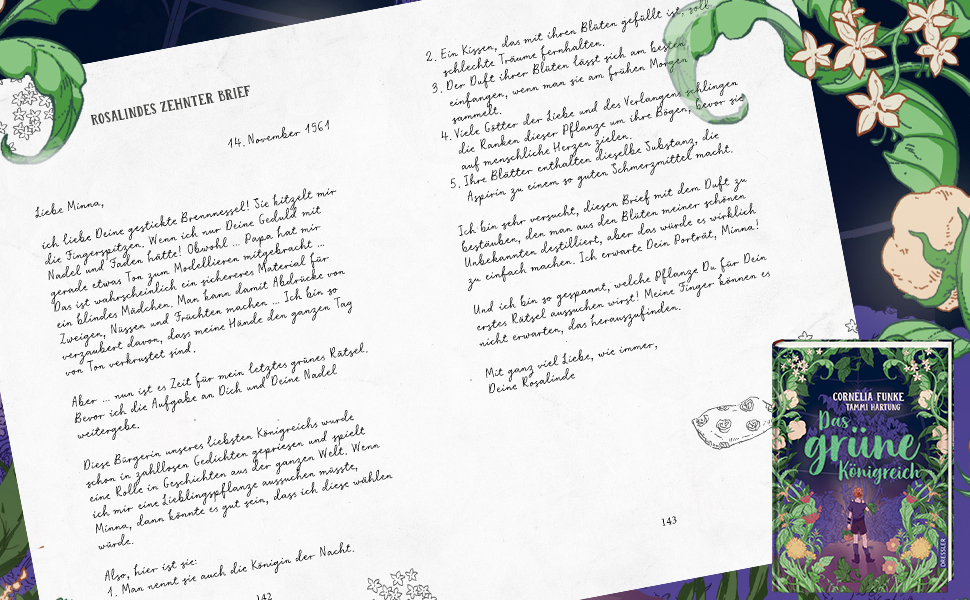 ROSALINDES ZEHNTER BRIEF
14. November 1961
Liebe Minna,
ich liebe Deine gestickte Brennnessel! Sie kitzelt mir
die Fingerspitzen. Wenn ich nur Deine Geduld mit
Nadel und Faden hätte! Obwohl ... Papa hat mir
gerade etwas Ton zum Modellieren mitgebracht ...
Das ist wahrscheinlich ein sichereres Material für
ein blindes Mädchen. Man kann damit Abdrücke von
Zweigen, Nüssen und Früchten machen ... Ich bin so
verzaubert davon, dass meine Hände den ganzen Tag
von Ton verkrustet sind.
Aber ... nun ist es Zeit für mein letztes grünes Rätsel.
Bevor ich die Aufgabe an Dich und Deine Nadel
weitergebe.
Diese Bürgerin unseres liebsten Königreichs wurde
schon in zahllosen Gedichten gepriesen und spielt
eine Rolle in Geschichten aus der ganzen Welt. Wenn
ich mir eine Lieblingspflanze aussuchen müsste,
Minna, dann könnte es gut sein, dass ich diese wählen
würde.
Also, hier ist sie:
1. Man nennt sie auch die Königin der Nacht.
142
2. Ein Kissen, das mit ihren Blüten gefüllt ist, soll
schlechte Träume fernhalten.
3. Der Duft ihrer Blüten lässt sich am besten
einfangen, wenn man sie am frühen Morgen
sammelt.
4. Viele Götter der Liebe und des Verlangens schlingen
die Ranken dieser Pflanze um ihre Bögen, bevor sie
auf menschliche Herzen zielen.
5. Ihre Blätter enthalten dieselbe Substanz, die
Aspirin zu einem so guten Schmerzmittel macht.
Ich bin sehr versucht, diesen Brief mit dem Duft zu
bestäuben, den man aus den Blüten meiner schönen
Unbekannten destilliert, aber das würde es wirklich
zu einfach machen. Ich erwarte Dein Porträt, Minna!
Und ich bin so gespannt, welche Pflanze Du für Dein
erstes Rätsel aussuchen wirst! Meine Finger können es
nicht erwarten, das herauszufinden.
Mit ganz viel Liebe, wie immer,
Deine Rosalinde
143
CORNELIA FUNKE
TAMMI HARTUNG
Das
grüne
Königreich
DRESSLER